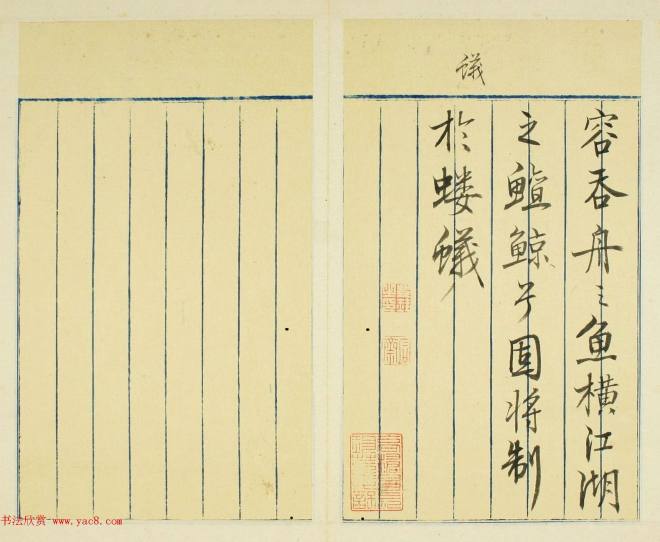 蟻
容吞舟之魚橫江湖
之鱣鯨兮固將制
於螻蟻
书法欣赏-www.yac8.com